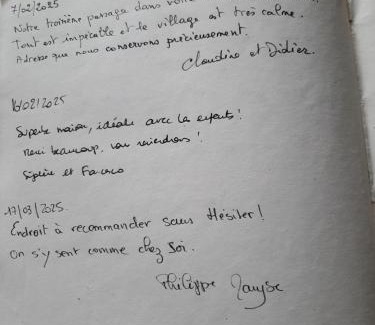 7/02/2025
Notre troisième passage dans votre
Tout est impeccable et le village est très calme.
Adresse que nous conservons précieusement.
Claudine et Didier.
16/02/2025
Superbe maison, idéale avec les enfants!
Merci beaucoup, nous reviendrons!
et
17/03/2025.
Endroit à recommander sans Hésiter!
On s'y sent comme chez soi.
Philippe